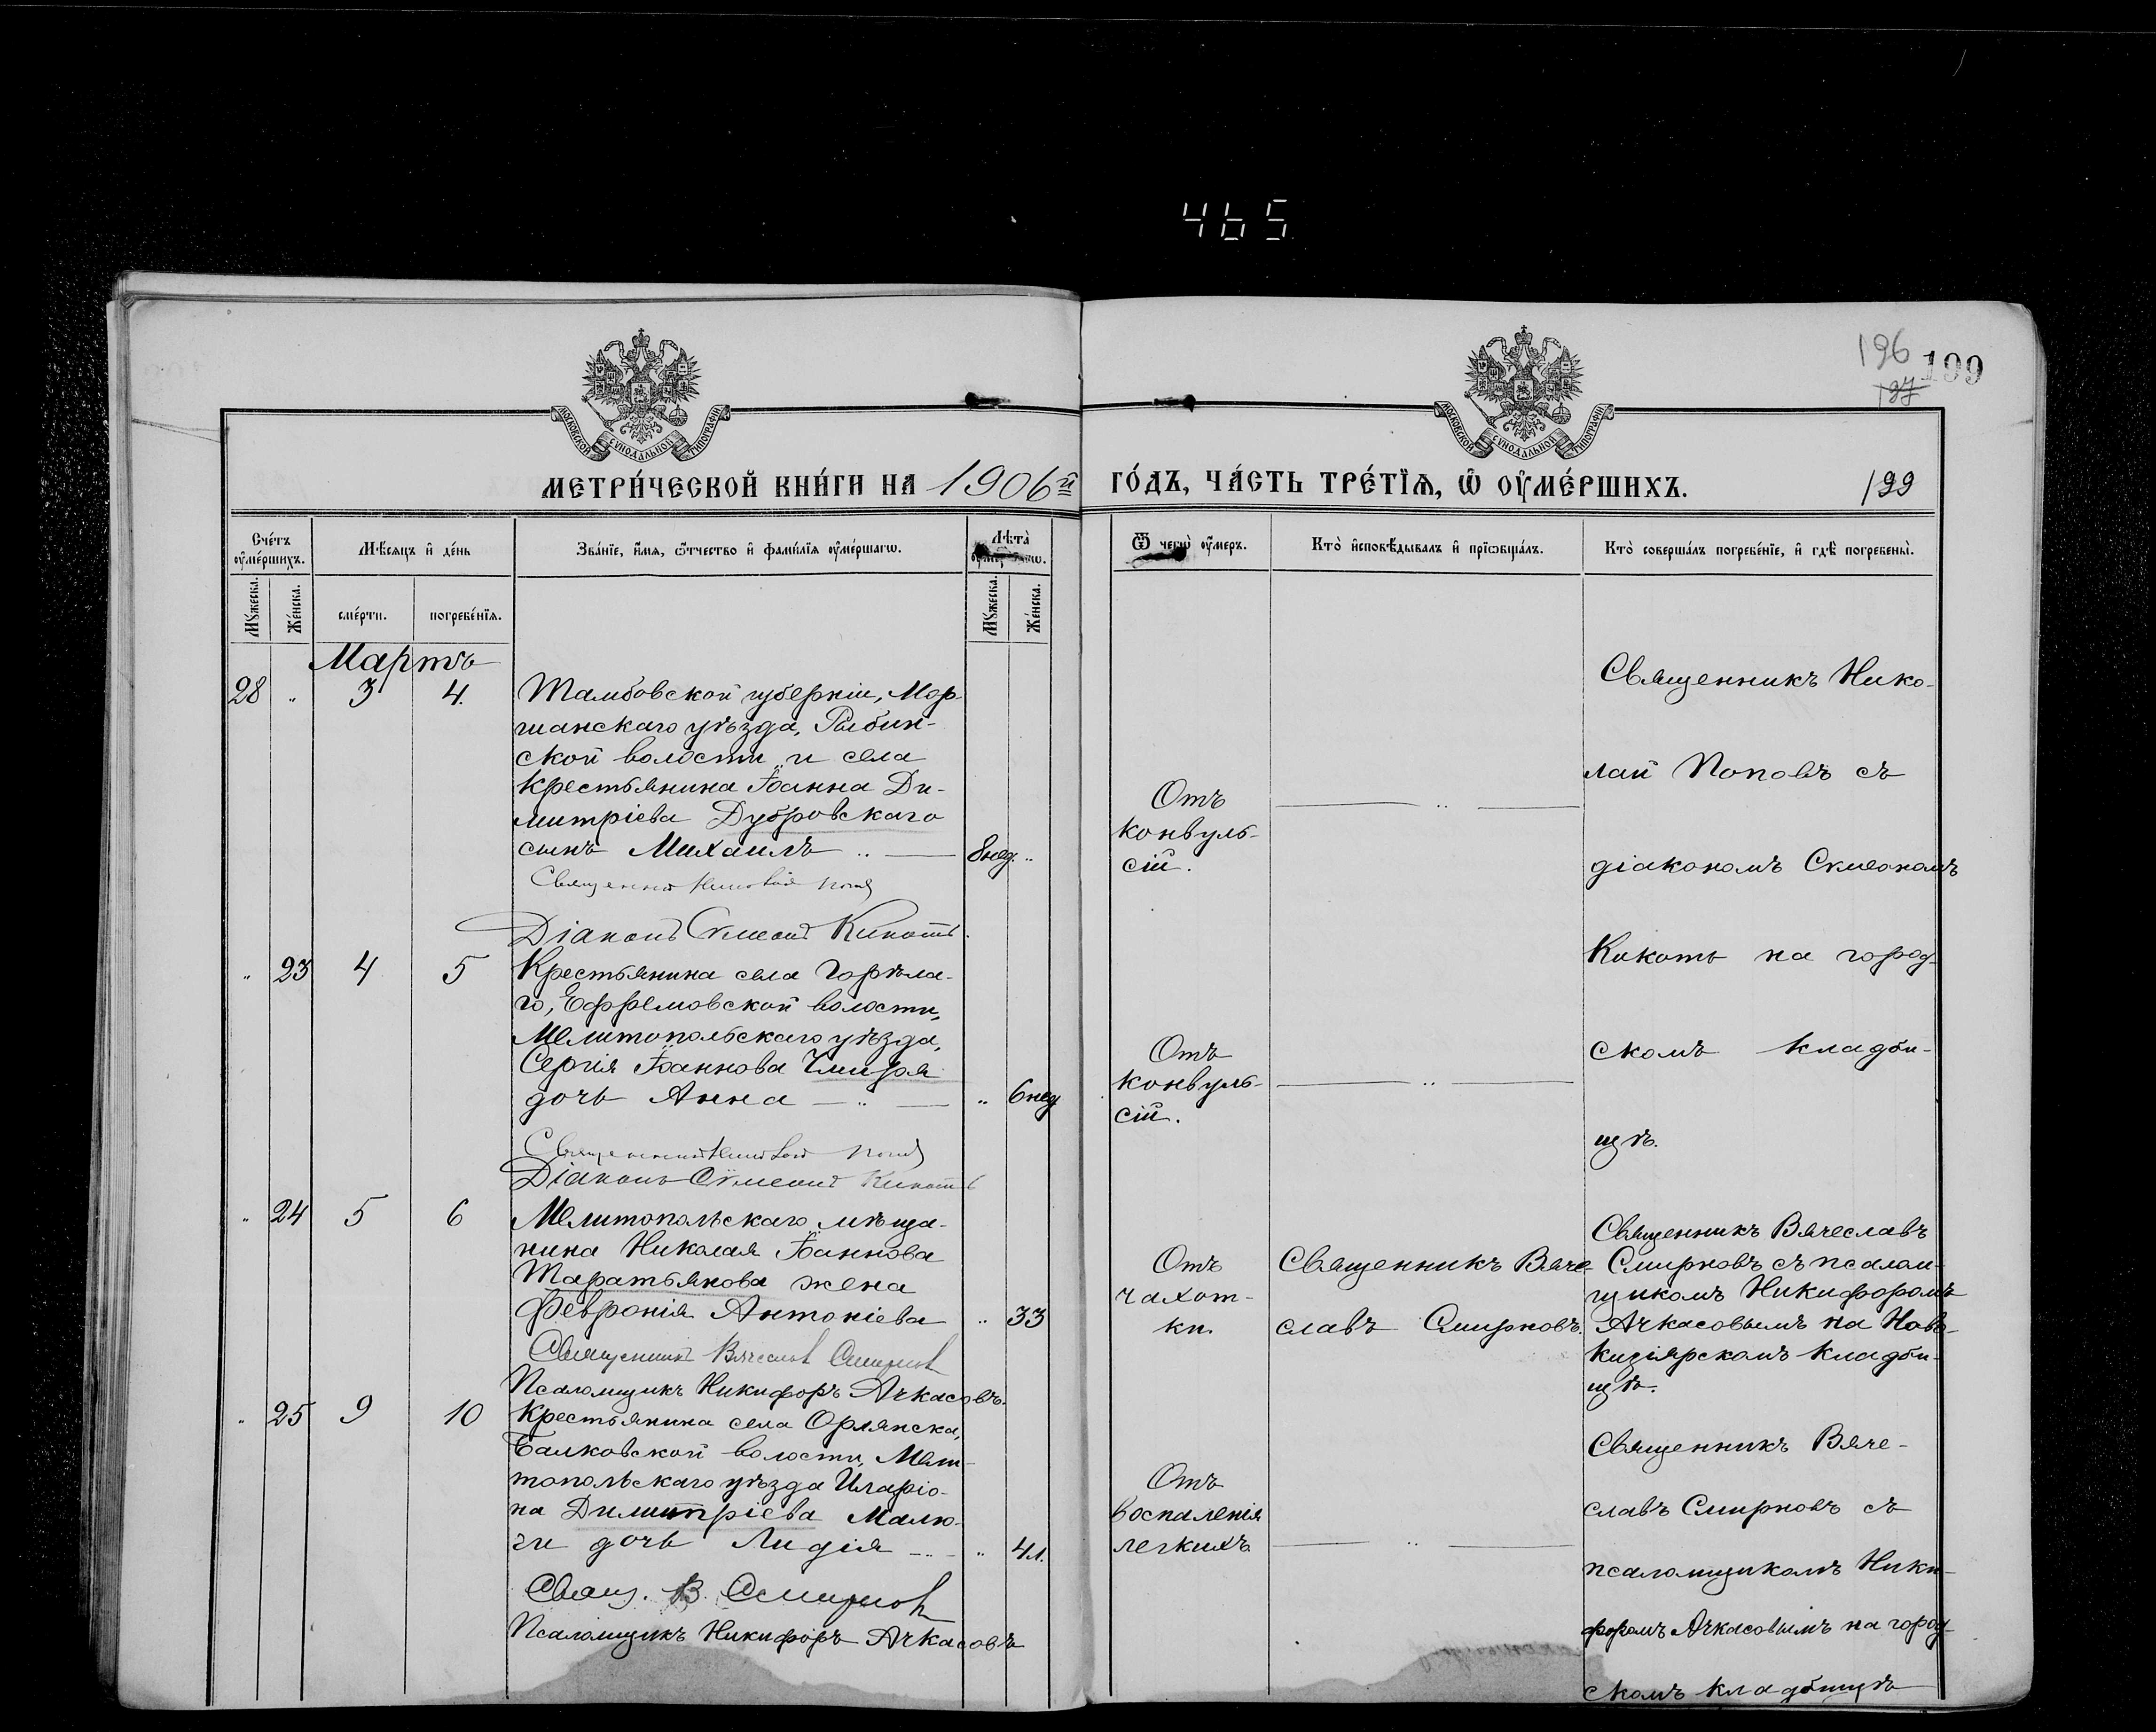 465
196
197
199
МОСКОВСКОЙ СѴНОДАЛЬНОЙ ТИПОГРАФІИ
МОСКОВСКОЙ СѴНОДАЛЬНОЙ ТИПОГРАФІИ
МЕТРИ́ЧЕСКОЙ КНИ́ГИ НА 1906й ГО́ДЪ, ЧА́СТЬ ТРЕ́ТЇѦ, Ѡ ОУ҆МЕ́РШИХЪ.
199
Сче́тъ оу҆ме́ршихъ.
Мѣ́сѧцъ и҆ де́нь
Зва́нїе, и҆́мѧ, ѻ҆́тчество и҆ фами́лїѧ оу҆ме́ршагѡ.
Лѣ́та̀
Ѿ чегѡ̀ оу҆́меръ.
Кто̀ и҆сповѣ́дывалъ и҆ прїѡбща́лъ.
Кто̀ соверша́лъ погребе́нїе, и҆ гдѣ̀ погребены̀.
Мꙋ́жеска.
Же́нска.
сме́рти.
погребе́нїѧ.
Мꙋ́жеска.
Же́нска.
Мартъ
28 " 3 4.
Тамбовской губерніи, Мор-
шанскаго уѣзда, Рыбин-
ской волости и села
крестьянина Іоанна Ди-
митріева Дубровскаго
сынъ Михаилъ " — 8 нед. "
Священникъ Николай Попов
Діаконъ Сѵмеонъ Кикоть.
Отъ
конвуль-
сій.
Священникъ Нико-
лай Поповъ съ
діакономъ Сѵмеономъ
Кикоть на город-
скомъ кладби-
щѣ.
" 23 4 5
Крестьянина села Горѣла-
го, Ефремовской волости,
Мелитопольскаго уѣзда,
Сергія Іоаннова Чмиря
дочь Анна — " — " 6 нед
Священникъ Николай Попов
Діаконъ Сѵмеонъ Кикоть
Отъ
конвуль-
сій.
" 24 5 6
Мелитопольскаго мѣща-
нина Николая Іоаннова
Таратьянова жена
Февронія Антоніева " 33
Священникъ Вячеслав Смирнов
Псаломщикъ Никифоръ Ачкасовъ.
Отъ
чахот-
ки.
Священникъ Вяче-
славъ Смирновъ.
Священникъ Вячеславъ
Смирновъ съ псалом-
щикомъ Никифоромъ
Ачкасовымъ на Ново-
кизіярскомъ кладби-
щѣ.
" 25 9 10
Крестьянина села Орлянска,
Балковской волости, Мели-
топольскаго уѣзда Иларіо-
на Димитріева Малю-
ги дочь Лидія — " " 4 л.
Свящ. В. Смирнов
Псаломщикъ Никифоръ Ачкасовъ
Отъ
воспаленія
легкихъ
Священникъ Вяче-
славъ Смирновъ съ
псаломщикомъ Ники-
форомъ Ачкасовымъ на город-
скомъ кладбищѣ